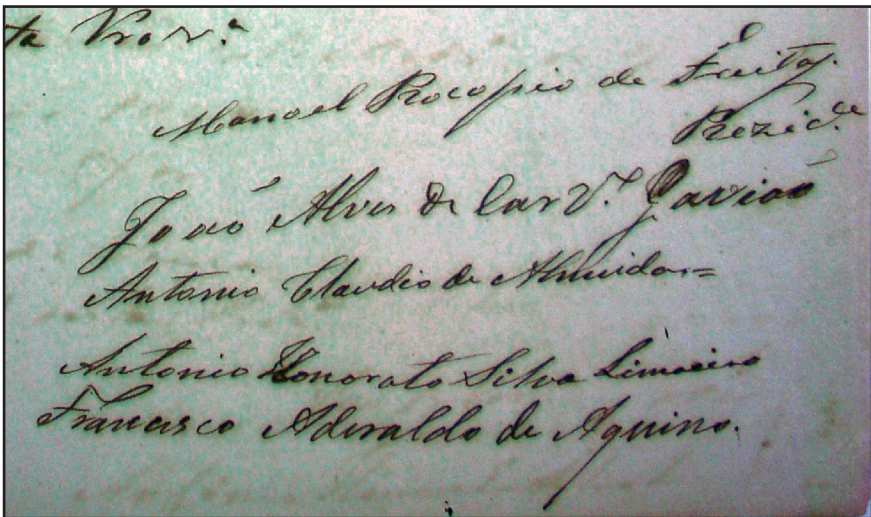 ta Prov.ª
Manoel Procopio de Freitas.
Prezid.e
João Alves de Carv.º Gavião
Antonio Claudio de Almeida=
Antonio Honorato Silva Limoeiro
Francisco Aderaldo de Aquino.